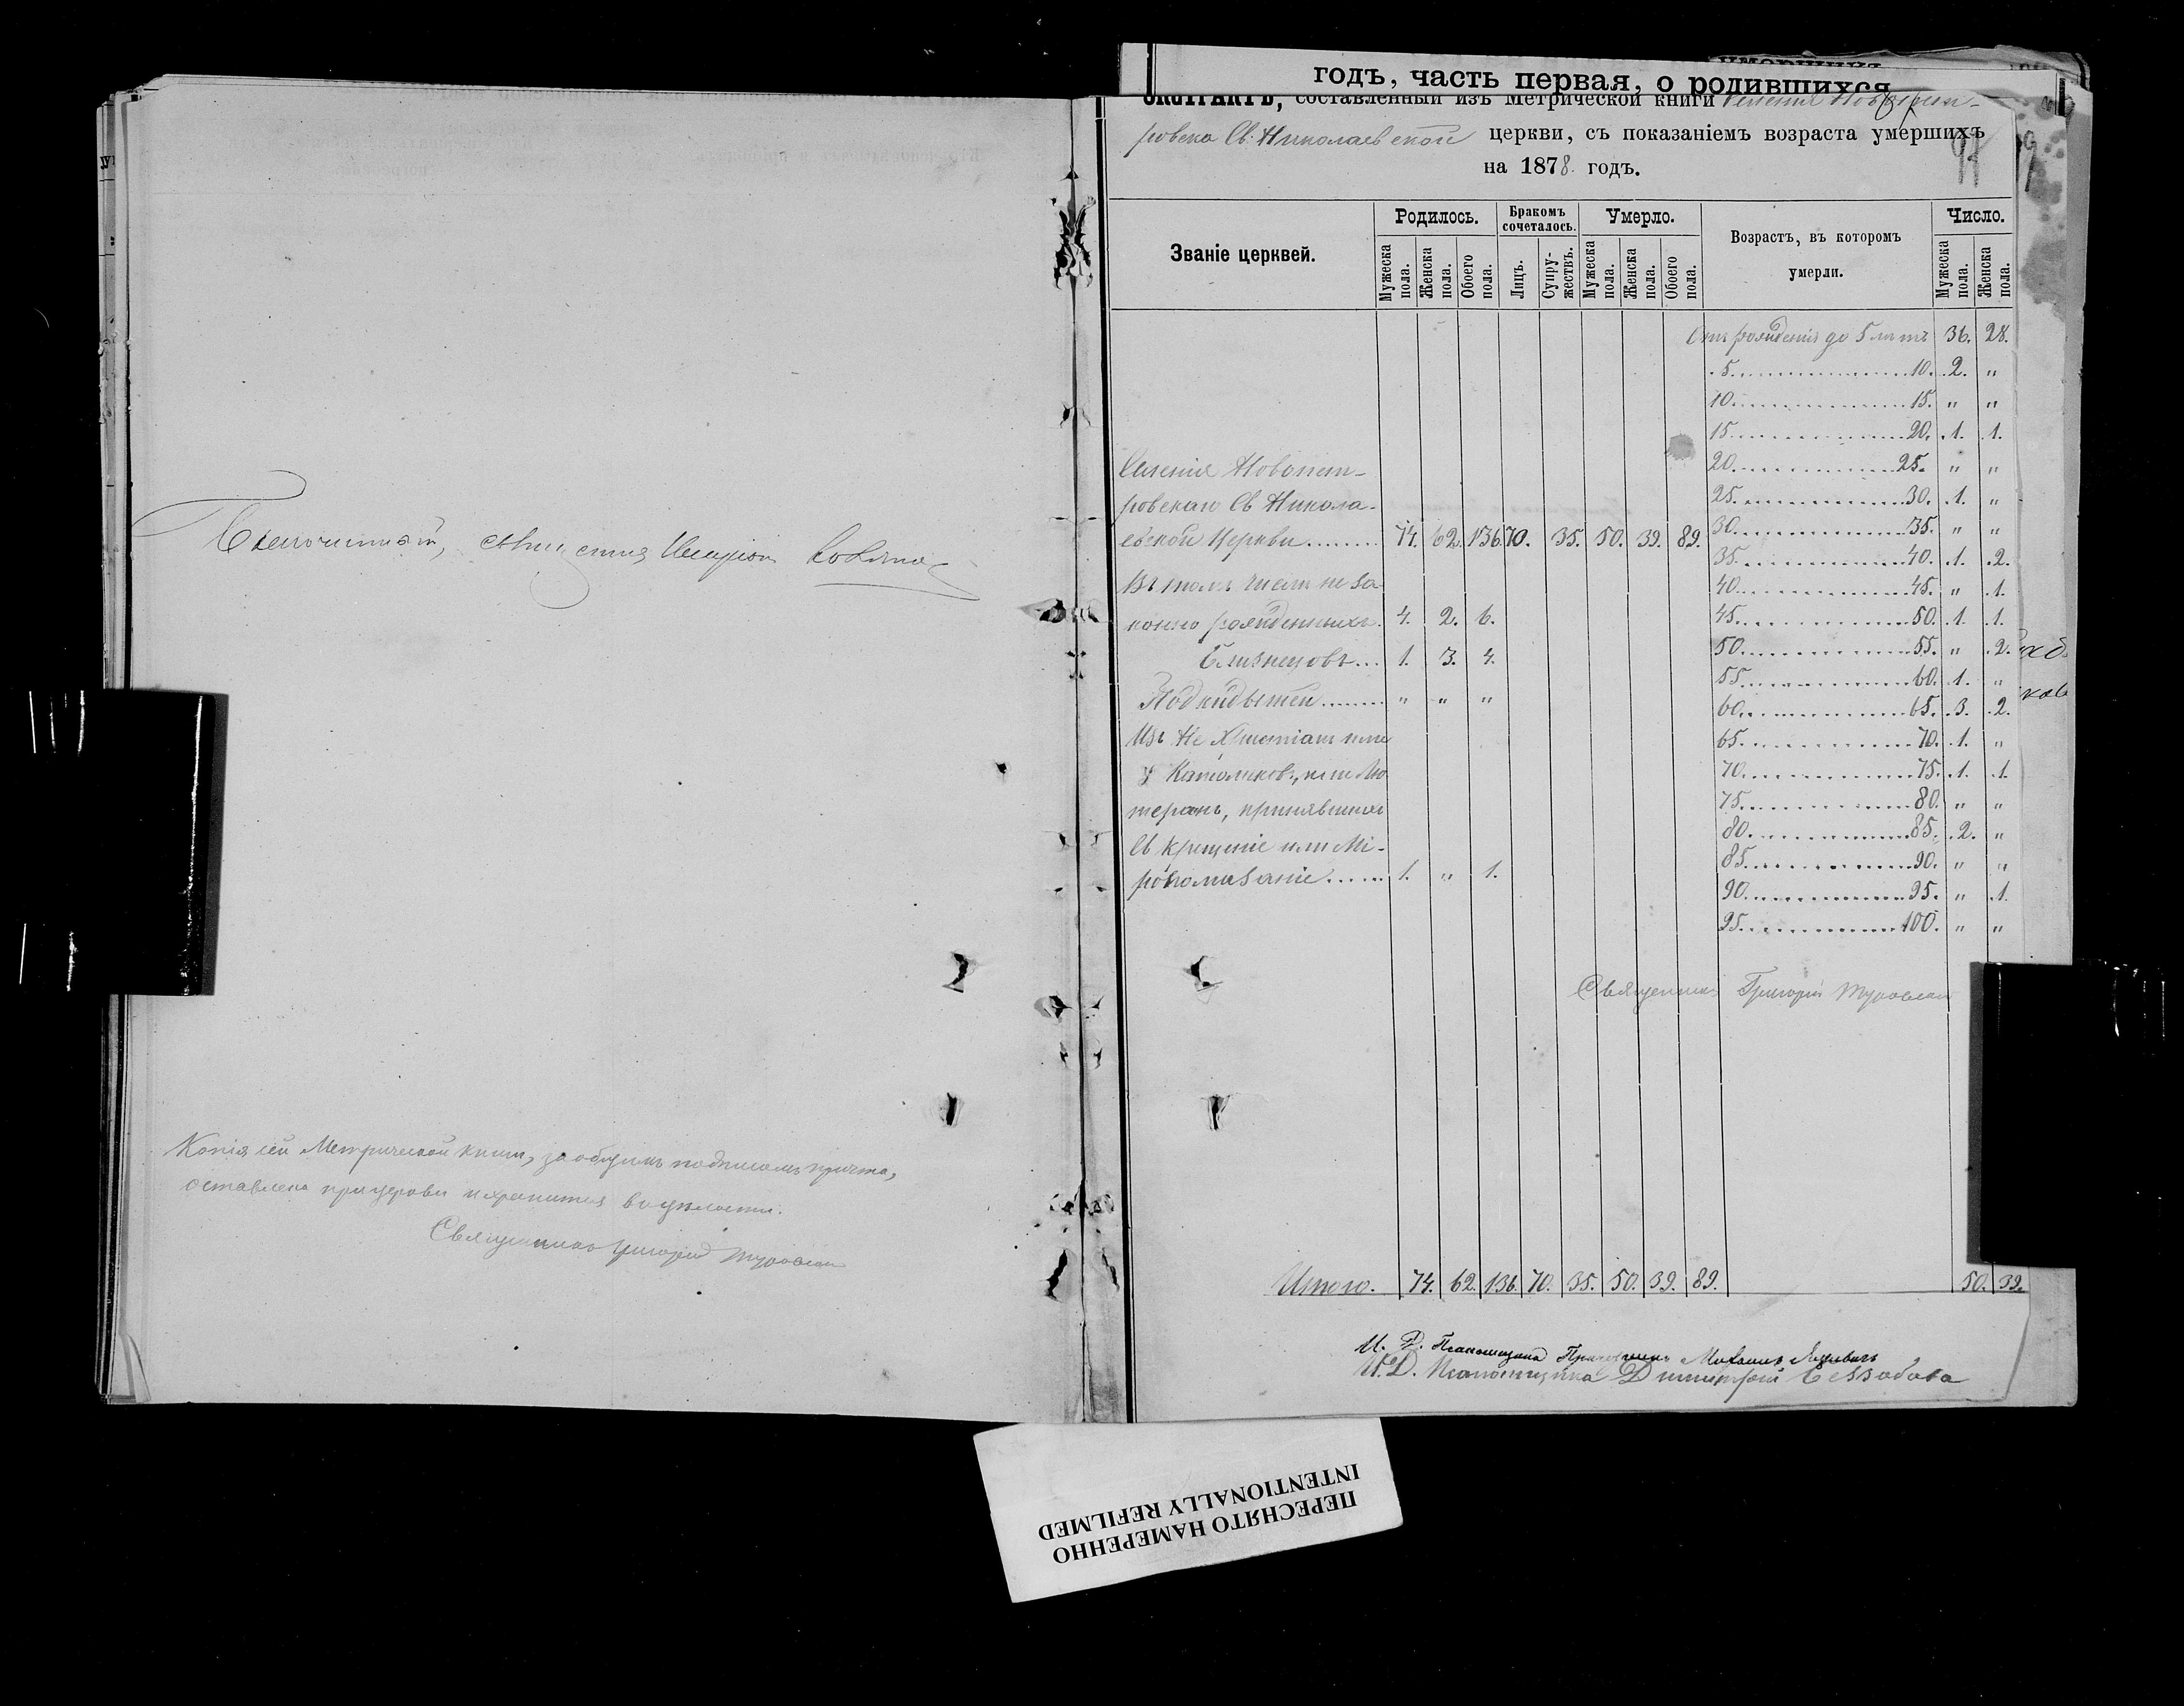 Благочинный, священник Иларион
Копія сей Метрической книги, за общимъ подписомъ причта,
оставлена при церкви и хранится въ цѣлости.
Священникъ Григорій Туровский
годъ, часть первая, о родившихся
ЭКСТРАКТЪ, составленный изъ Метрической книги селенія Новопет-
ровска Св. Николаевской церкви, съ показаніемъ возраста умершихъ
на 1878 годъ.
Званіе церквей. Родилось. Бракомъ сочеталось. Умерло. Возрастъ, въ которомъ умерли. Число.
Мужеска пола. Женска пола. Обоего пола. Лицъ. Супру-жествъ. Мужеска пола. Женска пола. Обоего пола. Мужеска пола. Женска пола.
Селенія Новопет-
ровскаго Св Никола-
евской Церкви........ 74. 62. 136. 70. 35. 50. 39. 89.
Въ томъ числѣ неза-
конно рожденныхъ. 4. 2. 6.
Близнецовъ... 1. 3. 4.
Подкидышей........ " " "
Изъ Не Христіанъ или
Католиковъ, или Лю
теранъ, принявшихъ
Св Крещеніе или Мі-
ропомазаніе...... 1. " 1.
Отъ рожденія до 5 лѣтъ 36. 28.
5. 10. 2. "
10. 15. " "
15. 20. 1. 1.
20. 25. " "
25. 30. 1. "
30. 35. " "
35. 40. 1. 2.
40. 45. " 1.
45. 50. 1. 1.
50. 55. " 2.
55. 60. 1. "
60. 65. 3. 2.
65. 70. 1. "
70. 75. 1. 1.
75. 80. " "
80. 85. 2. "
85. 90. " "
90. 95. " 1.
95. 100. " "
Священникъ Григорій Туровский
Итого. 74. 62. 136. 70. 35. 50. 39. 89. 50. 39.
И. Д. Псаломщика Михаилъ
И. Д. Псаломщика Димитрій
ПЕРЕСНЯТО НАМЕРЕННО
INTENTIONALLY REFILMED